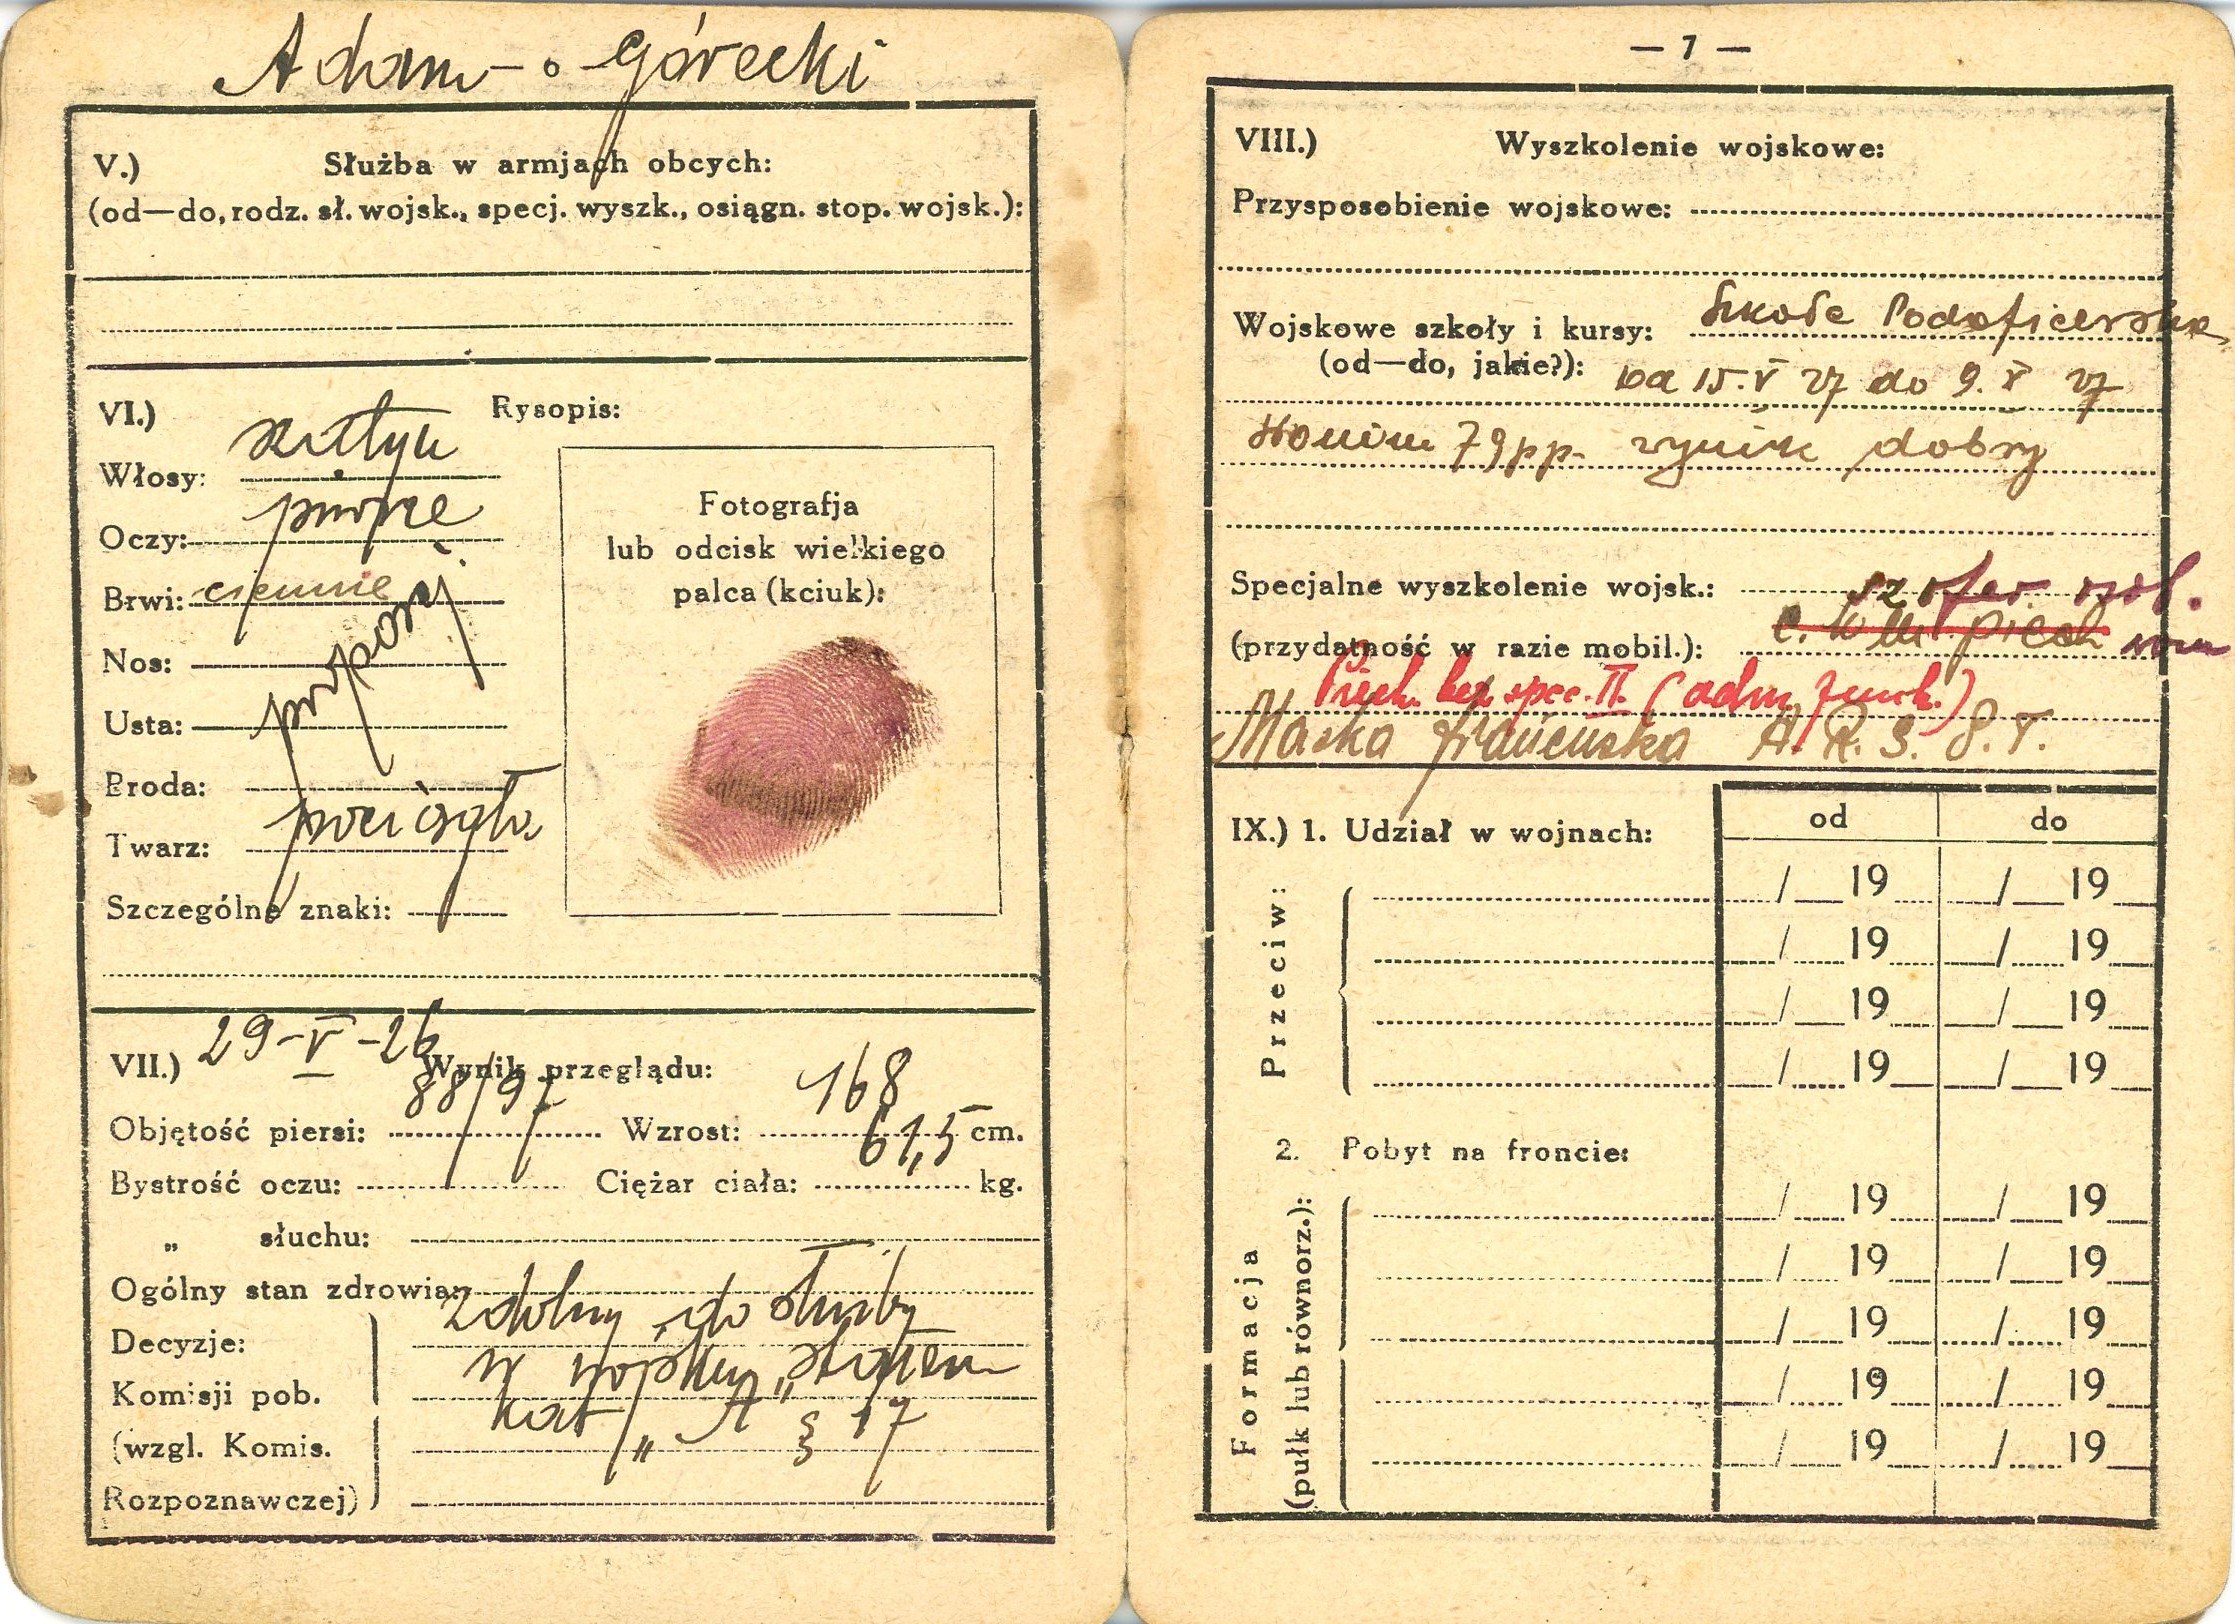 Adam Górecki
V.) Służba w armjach obcych:
(od—do, rodz. sł. wojsk., specj. wyszk., osiągn. stop. wojsk.):
VI.) Rysopis:
Włosy:
Oczy: piwne
Brwi: ciemne
Nos:
Usta:
Broda:
Twarz: pociągła
Szczególne znaki:
Fotografja
lub odcisk wielkiego
palca (kciuk):
VII.) 29-V-26 Wynik przeglądu:
Objętość piersi: 88/97 Wzrost: 168 cm.
Bystrość oczu: Ciężar ciała: 61,5 kg.
„ słuchu:
Ogólny stan zdrowia:
Decyzje: zdolny do służby
Komisji pob. w wojsku
(wzgl. Komis. kat „A" § 17
Rozpoznawczej)
— 7 —
VIII.) Wyszkolenie wojskowe:
Przysposobienie wojskowe:
Wojskowe szkoły i kursy: Szkoła Podoficerska
(od—do, jakie?): od 15.V 27 do 9.X 27
Słonim 79 pp. wynik dobry
Specjalne wyszkolenie wojsk.: szofer
(przydatność w razie mobil.):
Piech. bez spec. II. (adm. funk.)
Maska A. R. S. 8. T.
IX.) 1. Udział w wojnach: od do
Przeciw:
/ 19 / 19
/ 19 / 19
/ 19 / 19
/ 19 / 19
2. Pobyt na froncie:
Formacja
(pułk lub równorz.):
/ 19 / 19
/ 19 / 19
/ 19 / 19
/ 19 / 19
/ 19 / 19